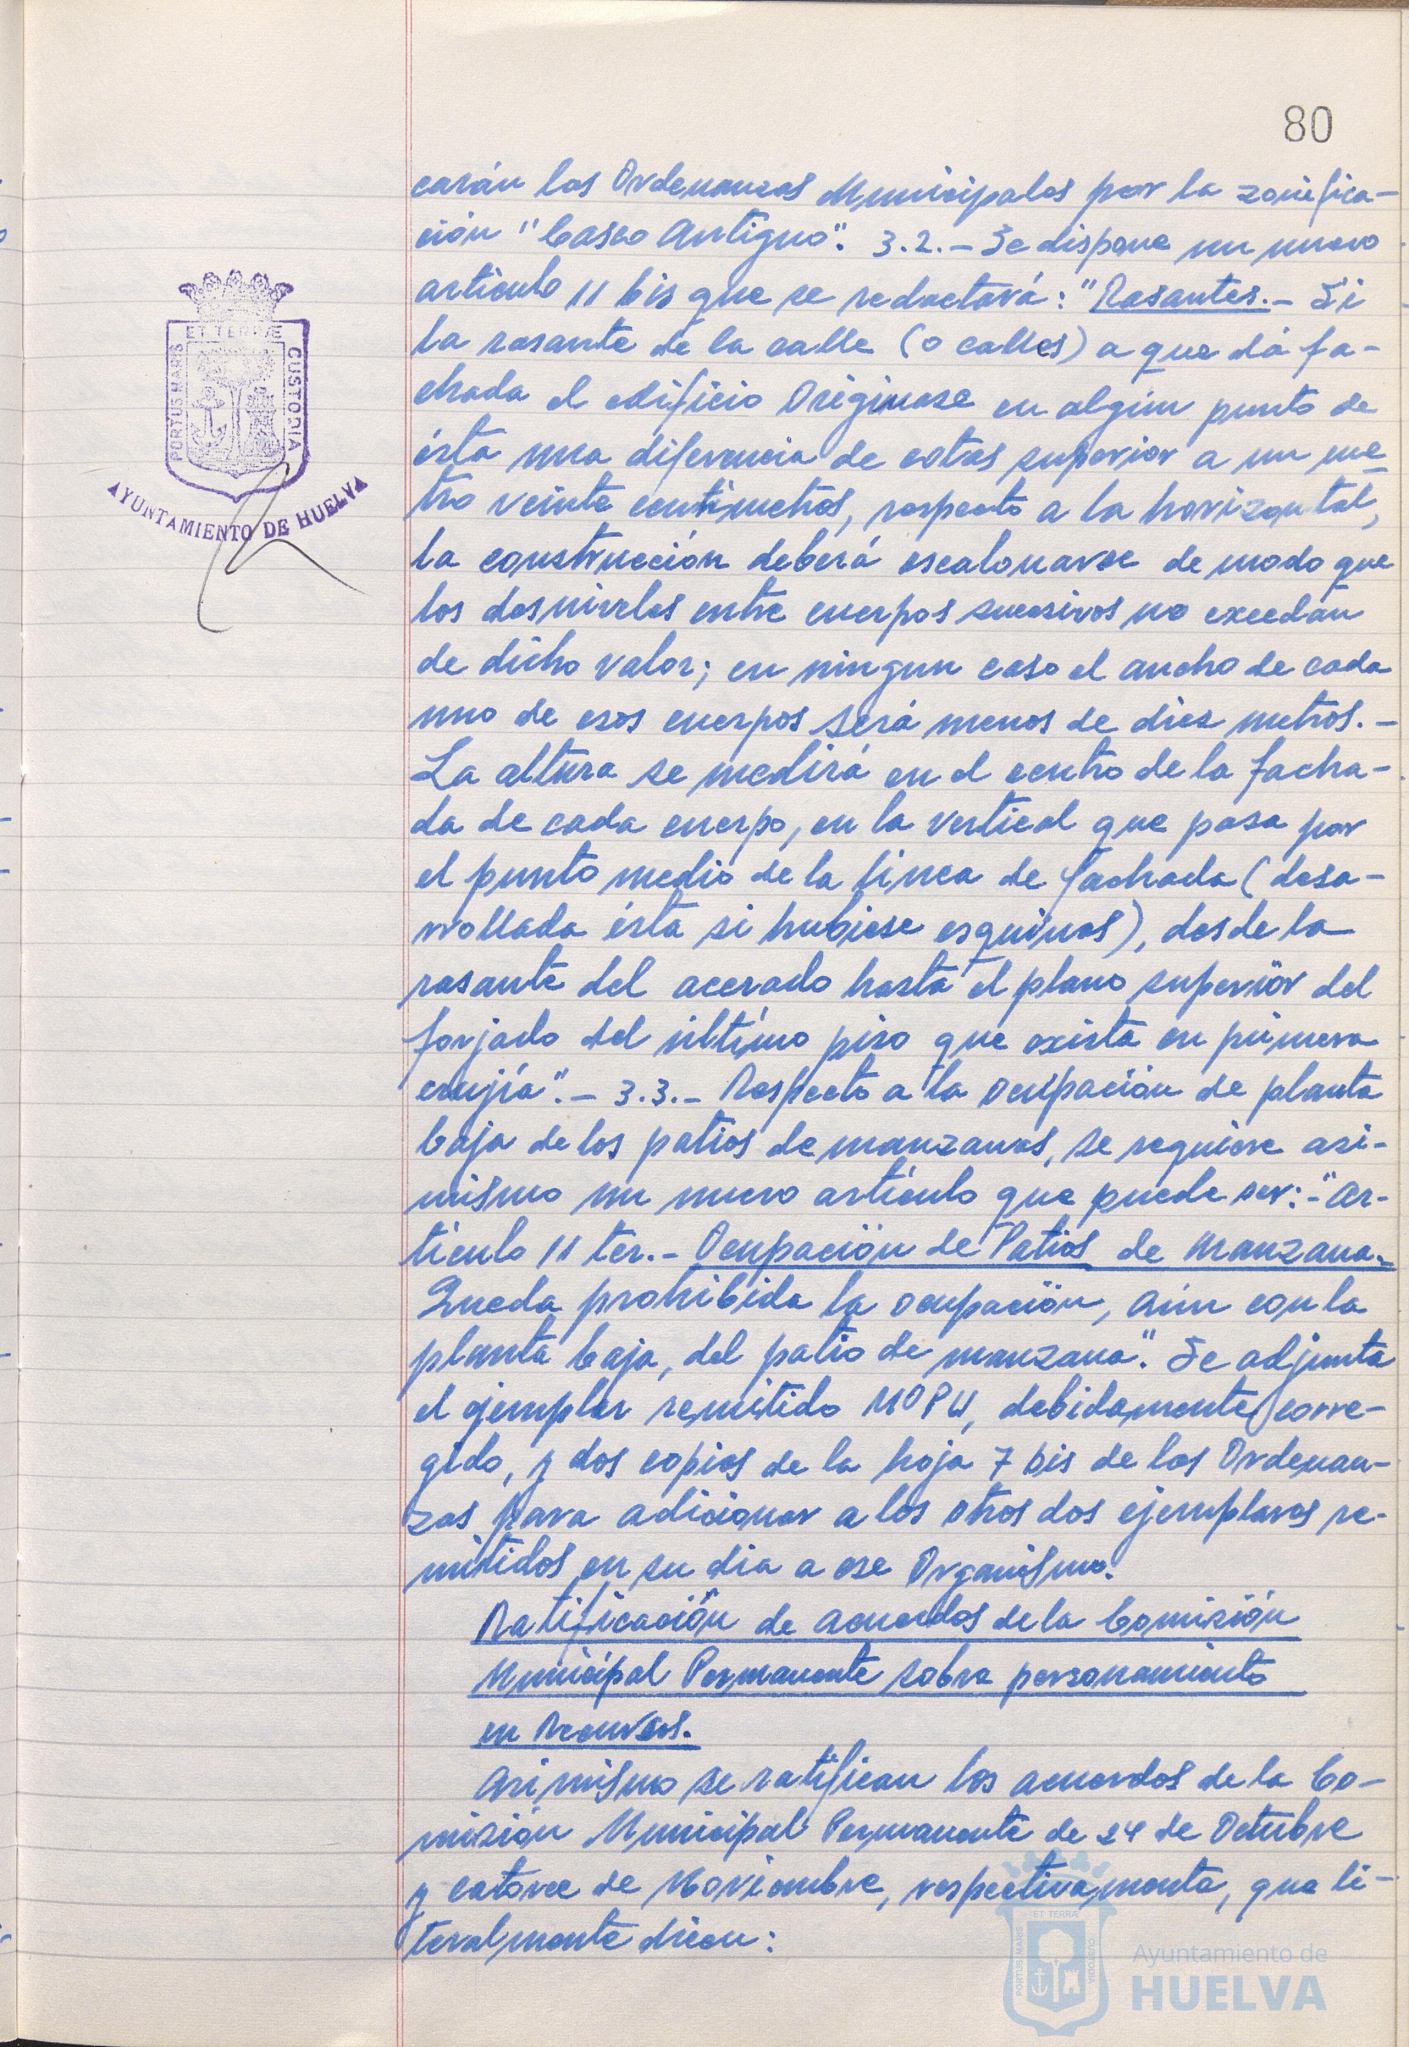 80
carán las Ordenanzas Municipales por la zonifica-
ción "Casco Antiguo". 3.2.- Se dispone un nuevo
artículo 11 bis que se redactará: "Rasantes.- Si
la rasante de la calle (o calles) a que dá fa-
chada el edificio originase en algún punto de
ésta una diferencia de cotas superior a un me-
tro veinte centímetros, respecto a la horizontal,
la construcción deberá escalonarse de modo que
los desniveles entre cuerpos sucesivos no excedan
de dicho valor; en ningun caso el ancho de cada
uno de esos cuerpos será menos de diez metros.-
La altura se medirá en el centro de la facha-
da de cada cuerpo, en la vertical que pasa por
el punto medio de la linea de fachada (desa-
rrollada ésta si hubiese esquinas), desde la
rasante del acerado hasta el plano superior del
forjado del último piso que exista en primera
crujía".- 3.3.- Respecto a la ocupación de planta
baja de los patios de manzanas, se requiere asi-
mismo un nuevo artículo que puede ser:-"Ar-
tículo 11 ter.- Ocupación de Patios de manzana.-
Queda prohibida la ocupación, aún con la
planta baja, del patio de manzana". Se adjunta
el ejemplar remitido MOPU, debidamente corre-
gido, y dos copias de la hoja 7 bis de las Ordenan-
zas para adicionar a los otros dos ejemplares re-
mitidos en su dia a ese Organismo.
Ratificación de acuerdos de la Comisión
Municipal Permanente sobre personamiento
en Recursos.
Asimismo se ratifican los acuerdos de la Co-
misión Municipal Permanente de 24 de Octubre
y catorce de Noviembre, respectivamente, que li-
teralmente dicen:
PORTUS MARIS
ET TERRÆ
CUSTODIA
AYUNTAMIENTO DE HUELVA
PORTUS MARIS
ET TERRÆ
CUSTODIA
Ayuntamiento de
HUELVA